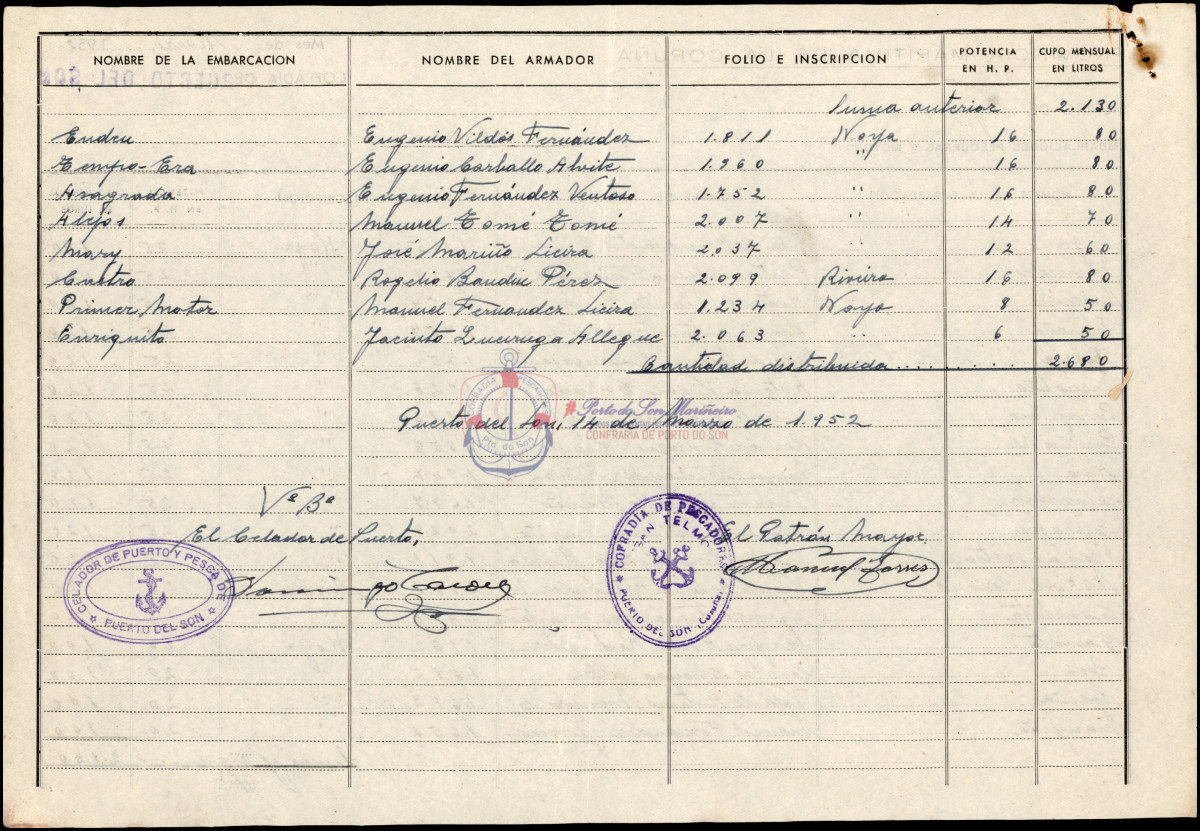 NOMBRE DE LA EMBARCACION NOMBRE DEL ARMADOR FOLIO E INSCRIPCION POTENCIA EN H. P. CUPO MENSUAL EN LITROS
Suma anterior 2.130
Eudeu Eugenio Vildós Fernández 1.811 Noya 16 80
Tempo-Era Eugenio Carballo Alvite 1.960 " 16 80
Anagrada Eugenio Fernández Ventoso 1.752 " 16 80
Manuel Tomé Tomé 2.007 " 14 70
Mary José Mariño Lieira 2.037 " 12 60
Castro Rogelio Baudin Pérez 2.099 Riveira 16 80
Primer Motor Manuel Fernandez Lieira 1.234 Noya 8 50
Enriquito Jacinto 2.063 " 6 50
Cantidad distribuida 2.680
Puerto del Son, 14 de Marzo de 1.952
COFRADIA PESCADORES
Pto. do Son
#Porto do Son Mariñeiro
CONFRARIA DE PORTO DO SON
Vº Bº
El Celador de Puerto,
El Patrón Mayor,
CELADOR DE PUERTO Y PESCA DE
PUERTO DEL SON
COFRADIA DE PESCADORES
SAN TELMO
PUERTO DEL SON (Coruña)
Manuel Torres